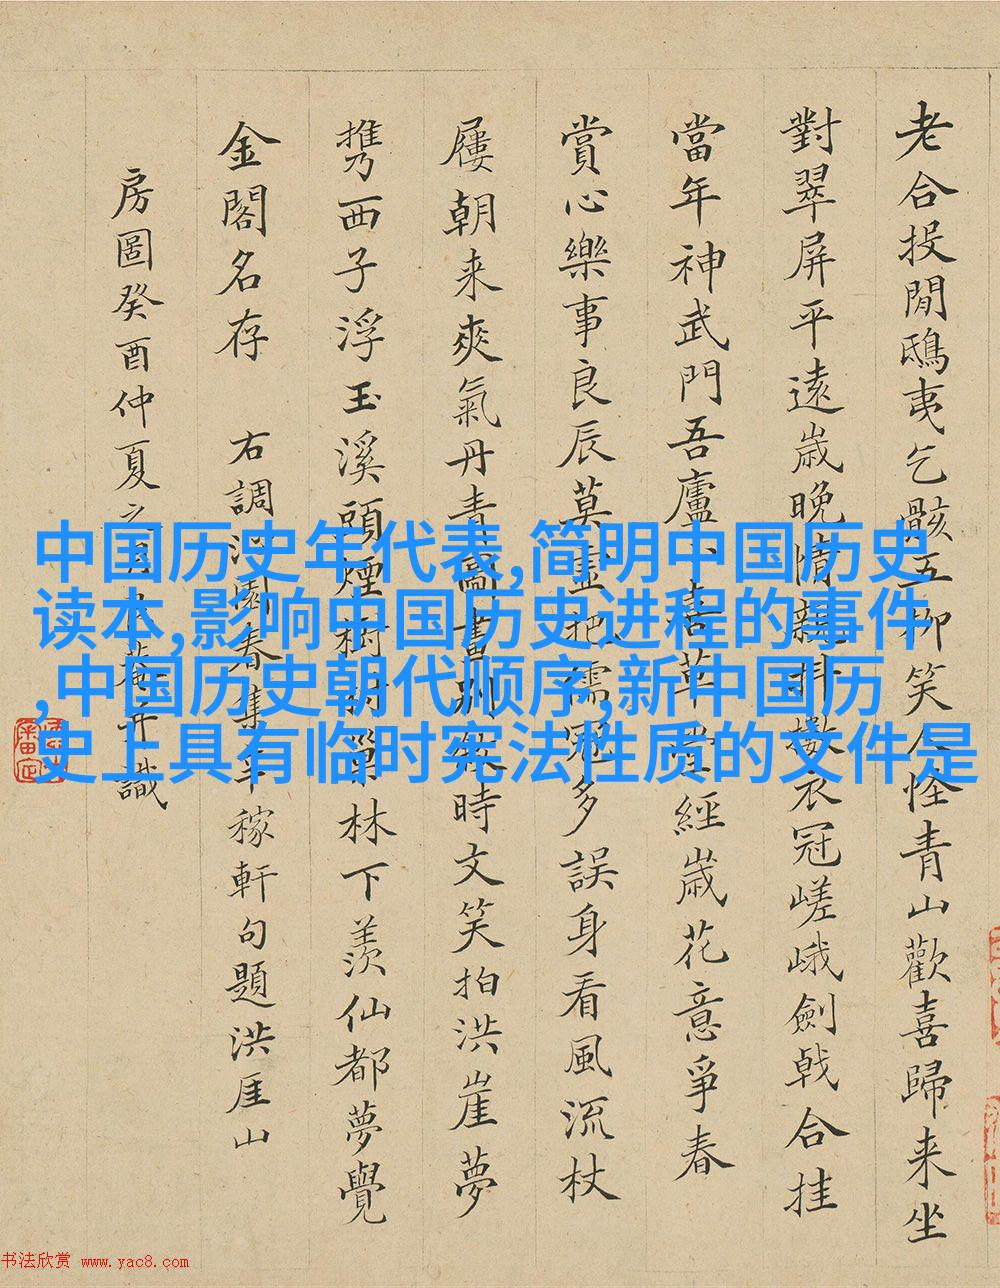 老合投閒鴟夷乞骸五柳笑人怪青山歡喜歸来坐
對翠屏平遠歳晚情親衣冠嵯峨劍戟合挂
當年神武門吾廬喜草堂經歳花意爭春
賞心樂事良辰莫把儒冠多誤身看風流杖
屨朝来爽氣丹青圖畫別時文笑拍洪崖夢
携西子浮玉溪頭煙樹林下羡仙都夢覺
金閣名存 右調沁園春集辛稼軒句題洪厓山
房圖癸酉仲夏之并識
中国历史年代表,简明中国历史
读本,影响中国历史进程的事件
,中国历史朝代顺序,新中国历
史上具有临时宪法性质的文件是
书法欣赏 www.yac8.com